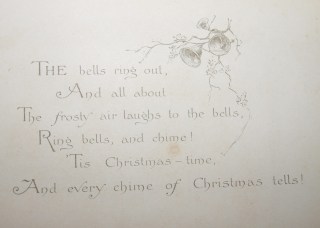 THE bells ring out,
And all about
The frosty air laughs to the bells,
Ring bells, and chime!
Tis Christmas-time,
And every chime of Christmas tells!